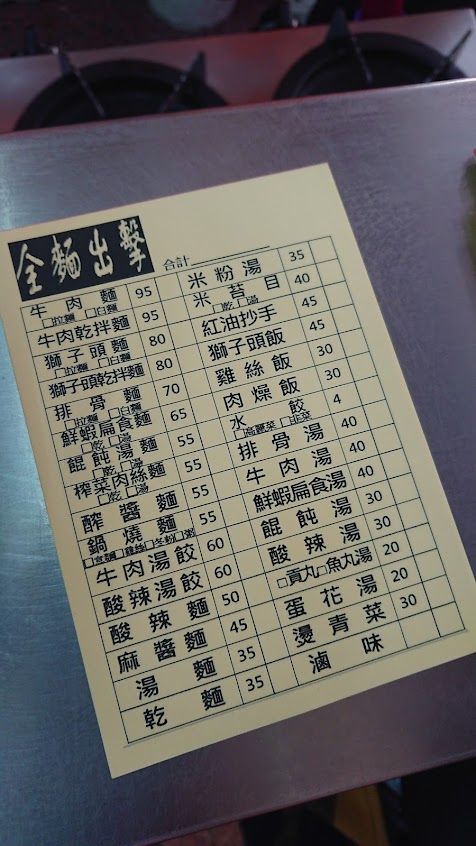 全麵出擊
合計
牛肉麵 95
□拉麵 □白麵
牛肉乾拌麵 95
獅子頭麵 80
□拉麵 □白麵
獅子頭乾拌麵 80
排骨麵 70
□拉麵 □白麵
鮮蝦扁食麵 65
□乾 □湯
餛飩湯麵 55
□乾 □湯
榨菜肉絲麵 55
□乾 □湯
醡醬麵 55
鍋燒麵 55
□意麵 □雞絲 □冬粉 □粥
牛肉湯餃 60
酸辣湯餃 60
酸辣麵 50
麻醬麵 45
湯麵 35
乾麵 35
米粉湯 35
米苔目 40
□乾 □湯
紅油抄手 45
獅子頭飯 45
雞絲飯 30
肉燥飯 30
水餃 4
□高麗菜 □韭菜
排骨湯 40
牛肉湯 40
鮮蝦扁食湯 40
餛飩湯 30
酸辣湯 30
□貢丸□魚丸湯 20
蛋花湯 20
燙青菜 30
滷味